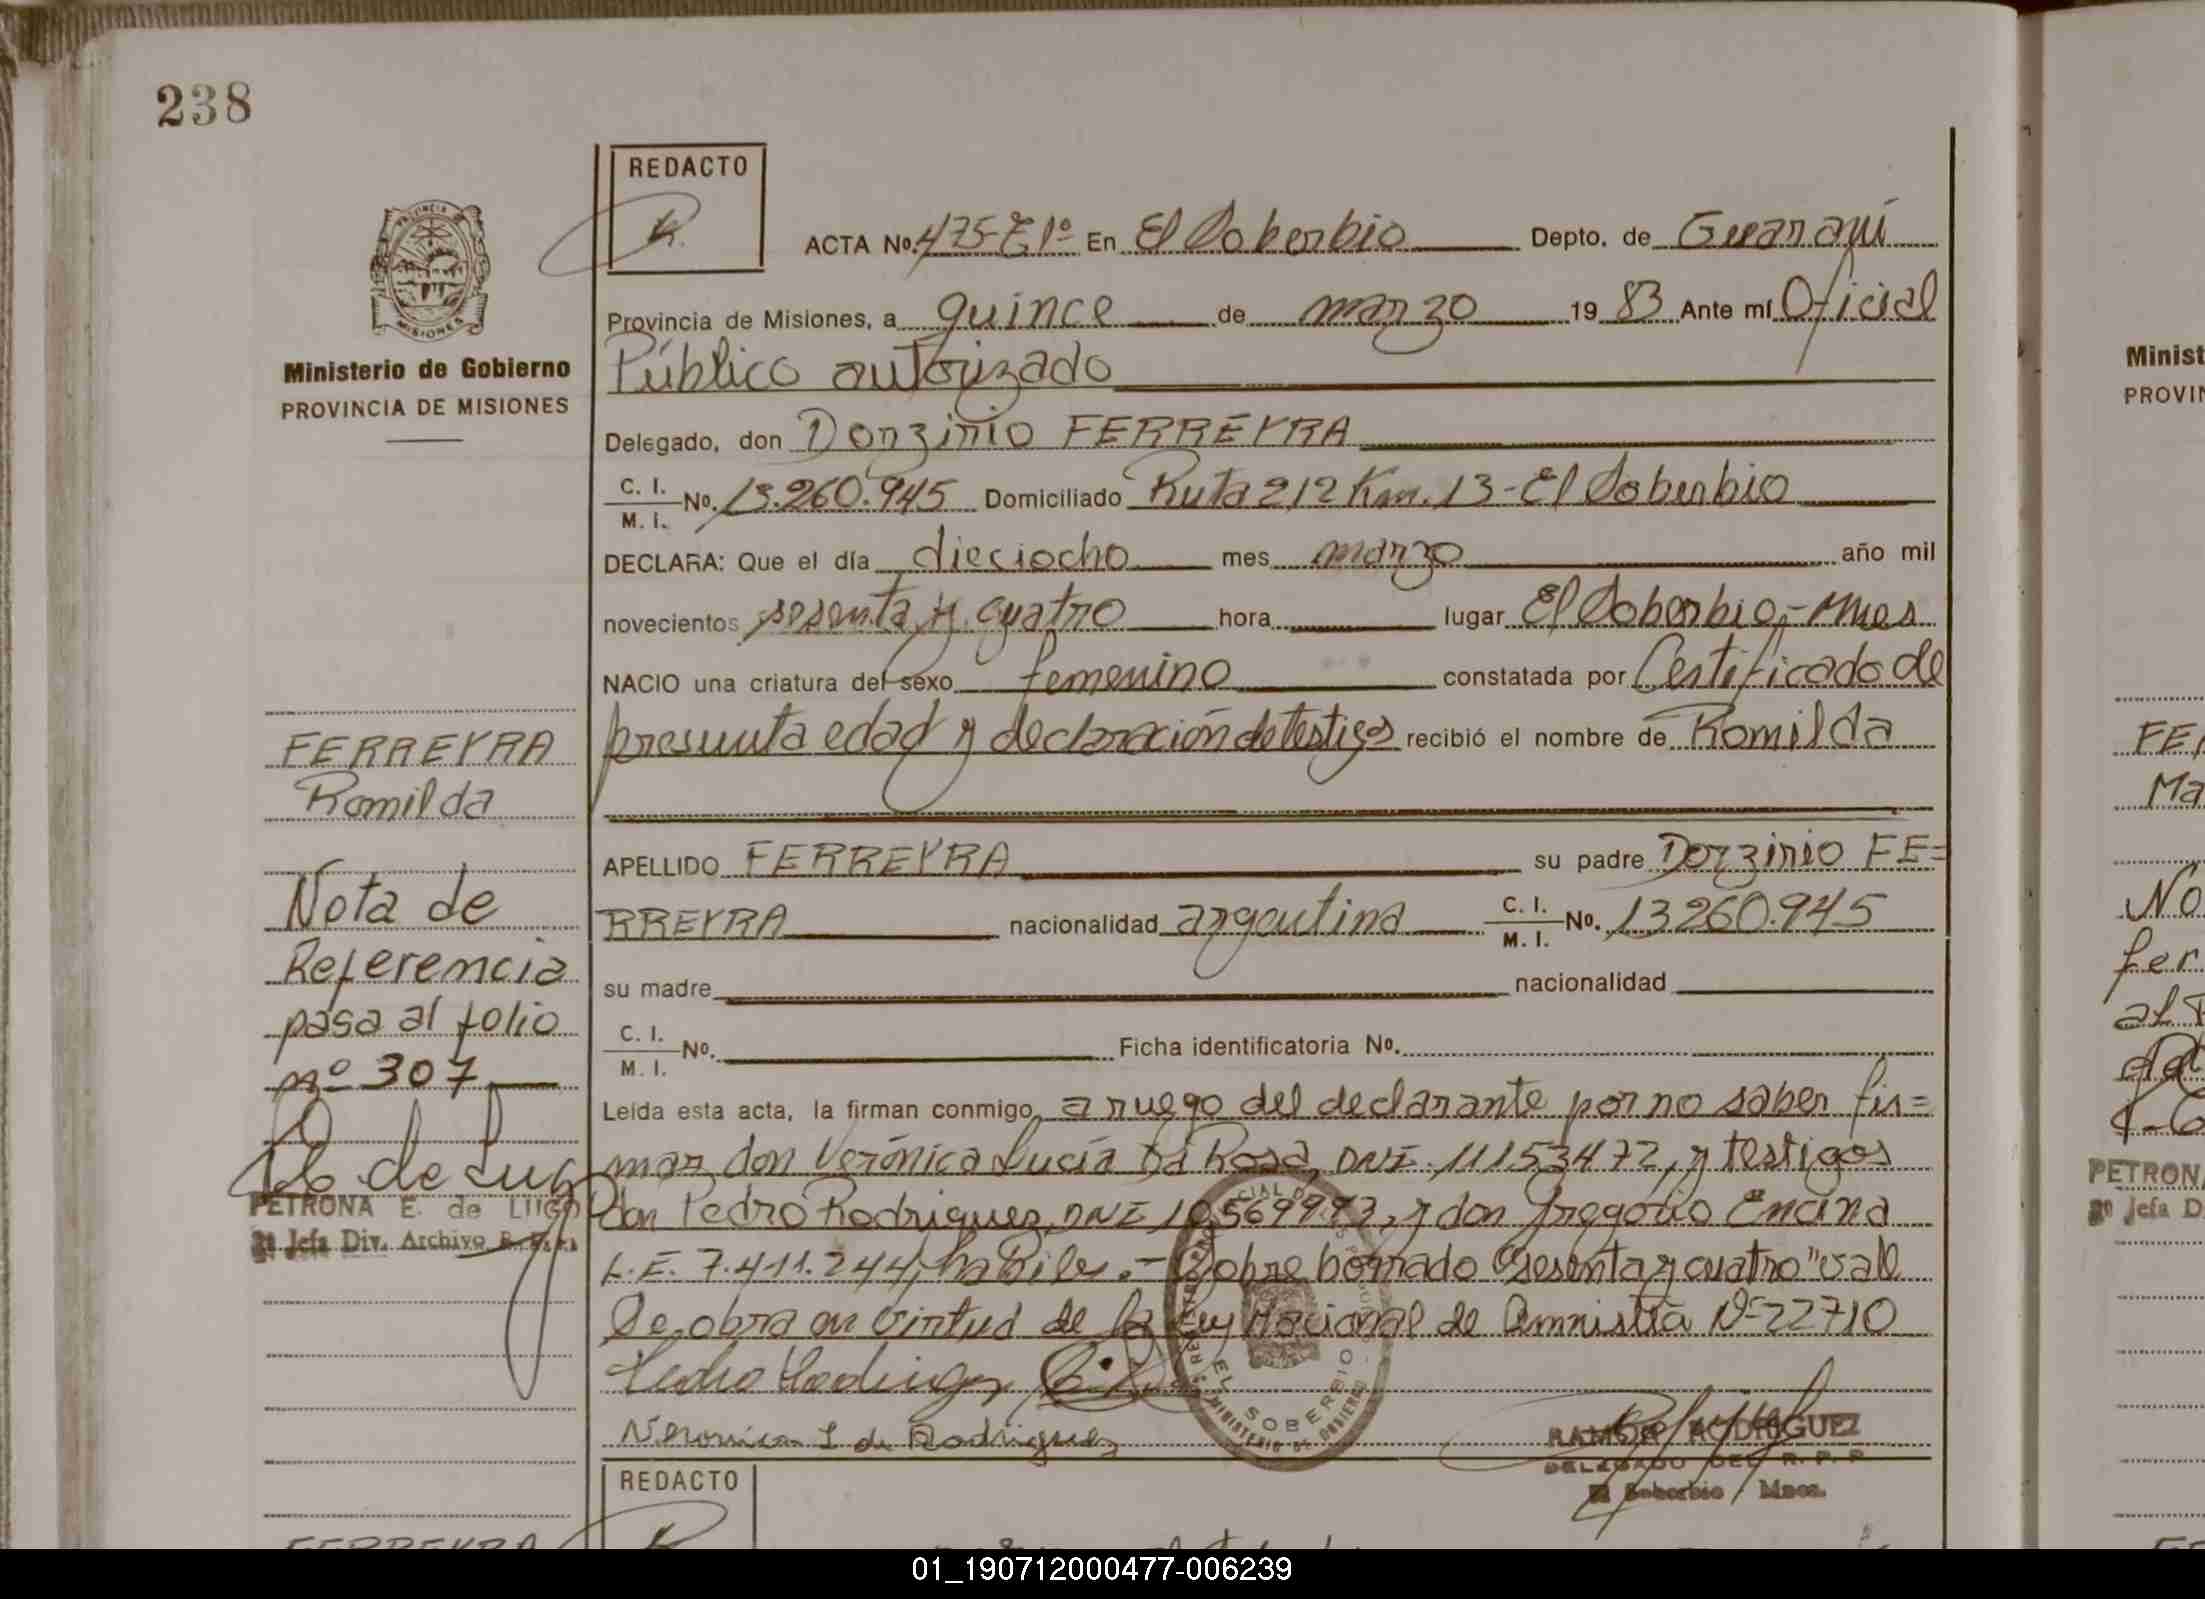 238
REDACTO
PROVINCIA
MISIONES
Ministerio de Gobierno
PROVINCIA DE MISIONES
ACTA No. 475-Tº1º En El Soberbio Depto. de Guaraní
Provincia de Misiones, a quince de marzo 1983 Ante mí Oficial
Público autorizado
Delegado, don Dorzinio FERREYRA
C. I. M. I. No. 13.260.945 Domiciliado Ruta 212 Km. 13 - El Soberbio
DECLARA: Que el día dieciocho mes marzo año mil
novecientos sesenta y cuatro hora lugar El Soberbio,- Mnes
NACIO una criatura del sexo femenino constatada por Certificado de
presunta edad y declaración de testigos recibió el nombre de Romilda
APELLIDO FERREYRA su padre Dorzinio FE=
RREYRA nacionalidad argentina C. I. M. I. No. 13260.945
su madre nacionalidad
C. I. M. I. No. Ficha identificatoria No.
Leída esta acta, la firman conmigo, a ruego del declarante por no saber fir=
mar don Verónica Lucía Da Rosa, DNI. 11153472, y testigos
don Pedro Rodriguez, DNI 10.569.993, y don Gregorio Encina
L.E. 7.411.244, hábiles.- Sobre borrado "sesenta y cuatro" vale
Se obra en virtud de la Ley Nacional de Amnistía Nº 22710
Pedro Rodriguez
Veronica L de Rodriguez
EL SOBERBIO
MINISTERIO DE GOBIERNO
RAMON RODRIGUEZ
DELEGADO DEL R. P. P
El Soberbio Mnes.
FERREYRA
Romilda
Nota de
Referencia
pasa al folio
nº 307
de Lugo
PETRONA E. de LUGO
Jefa Div. Archivo
REDACTO
FERREYRA
Minist
PROVIN
FE
Ma
No
fer
al
PETRON
Jefa D
01_190712000477-006239